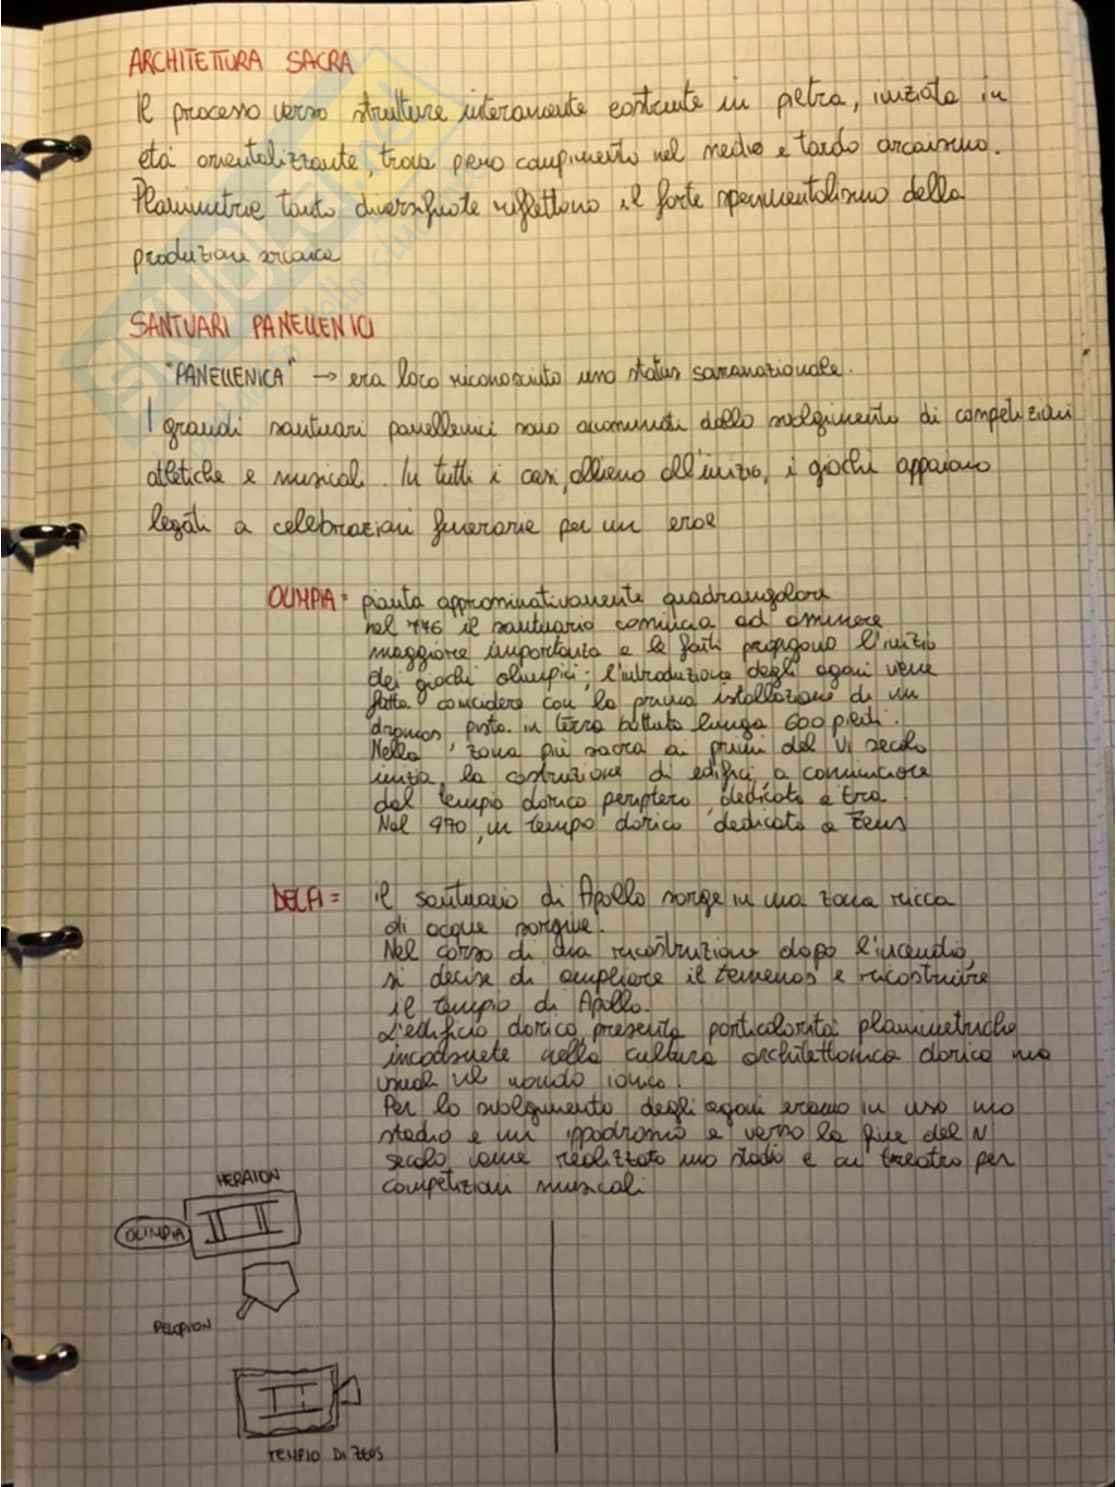 ARCHITETTURA SACRA
Il processo verso strutture interamente costruite in pietra, iniziato in
età orientalizzante, trova però compimento nel medio e tardo arcaismo.
Planimetrie tanto diversificate riflettono il forte sperimentalismo della
produzione arcaica
SANTUARI PANELLENICI
"PANELLENICA" → era loro riconosciuto uno status sovranazionale.
I grandi santuari panellenici sono accomunati dallo svolgimento di competizioni
atletiche e musicali. In tutti i casi, almeno all'inizio, i giochi appaiono
legati a celebrazioni funerarie per un eroe
OLIMPIA= pianta approssimativamente quadrangolare
nel 776 il santuario comincia ad assumere
maggiore importanza e le fonti pongono l'inizio
dei giochi olimpici; l'introduzione degli agoni viene
fatta coincidere con la prima istallazione di un
dromos pista in terra battuta lunga 600 piedi.
Nella zona più sacra ai primi del VI secolo
inizia la costruzione di edifici, a cominciare
dal tempio dorico periptero dedicato a Era
Nel 470, un tempio dorico dedicato a Zeus
DELFI= il santuario di Apollo sorge in una zona ricca
di acque sorgive.
Nel corso di una ricostruzione dopo l'incendio,
si decise di ampliare il temenos e ricostruire
il tempio di Apollo.
L'edificio dorico presenta particolarità planimetriche
inconsuete nella cultura architettonica dorica ma
usuali nel mondo ionico.
Per lo svolgimento degli agoni erano in uso uno
stadio e un ippodromo e verso la fine del IV
secolo venne realizzato uno stadio e un teatro per
competizioni musicali
HERAION
OLIMPIA
PELOPION
TEMPIO DI ZEUS